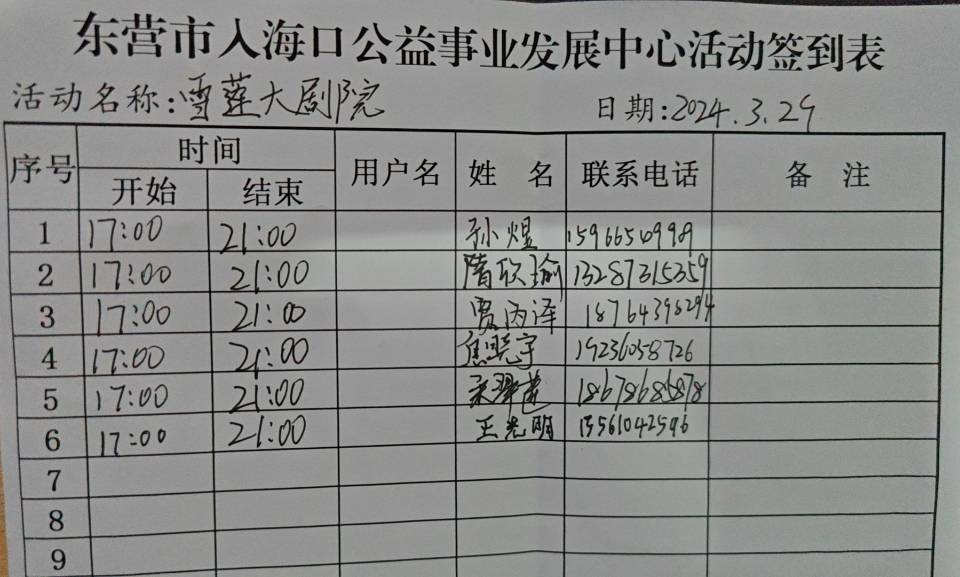 东营市入海口公益事业发展中心活动签到表
活动名称:雪莲大剧院 日期:2024.3.29
序号 时间 用户名 姓 名 联系电话 备 注
开始 结束
1 17:00 21:00 孙煜 15966540999
2 17:00 21:00 隋欣瑜 13287315359
3 17:00 21:00 贾丙泽 18764398294
4 17:00 21:00 焦晓宇 19236058726
5 17:00 21:00 18678686878
6 17:00 21:00 王光明 15561042596
7
8
9